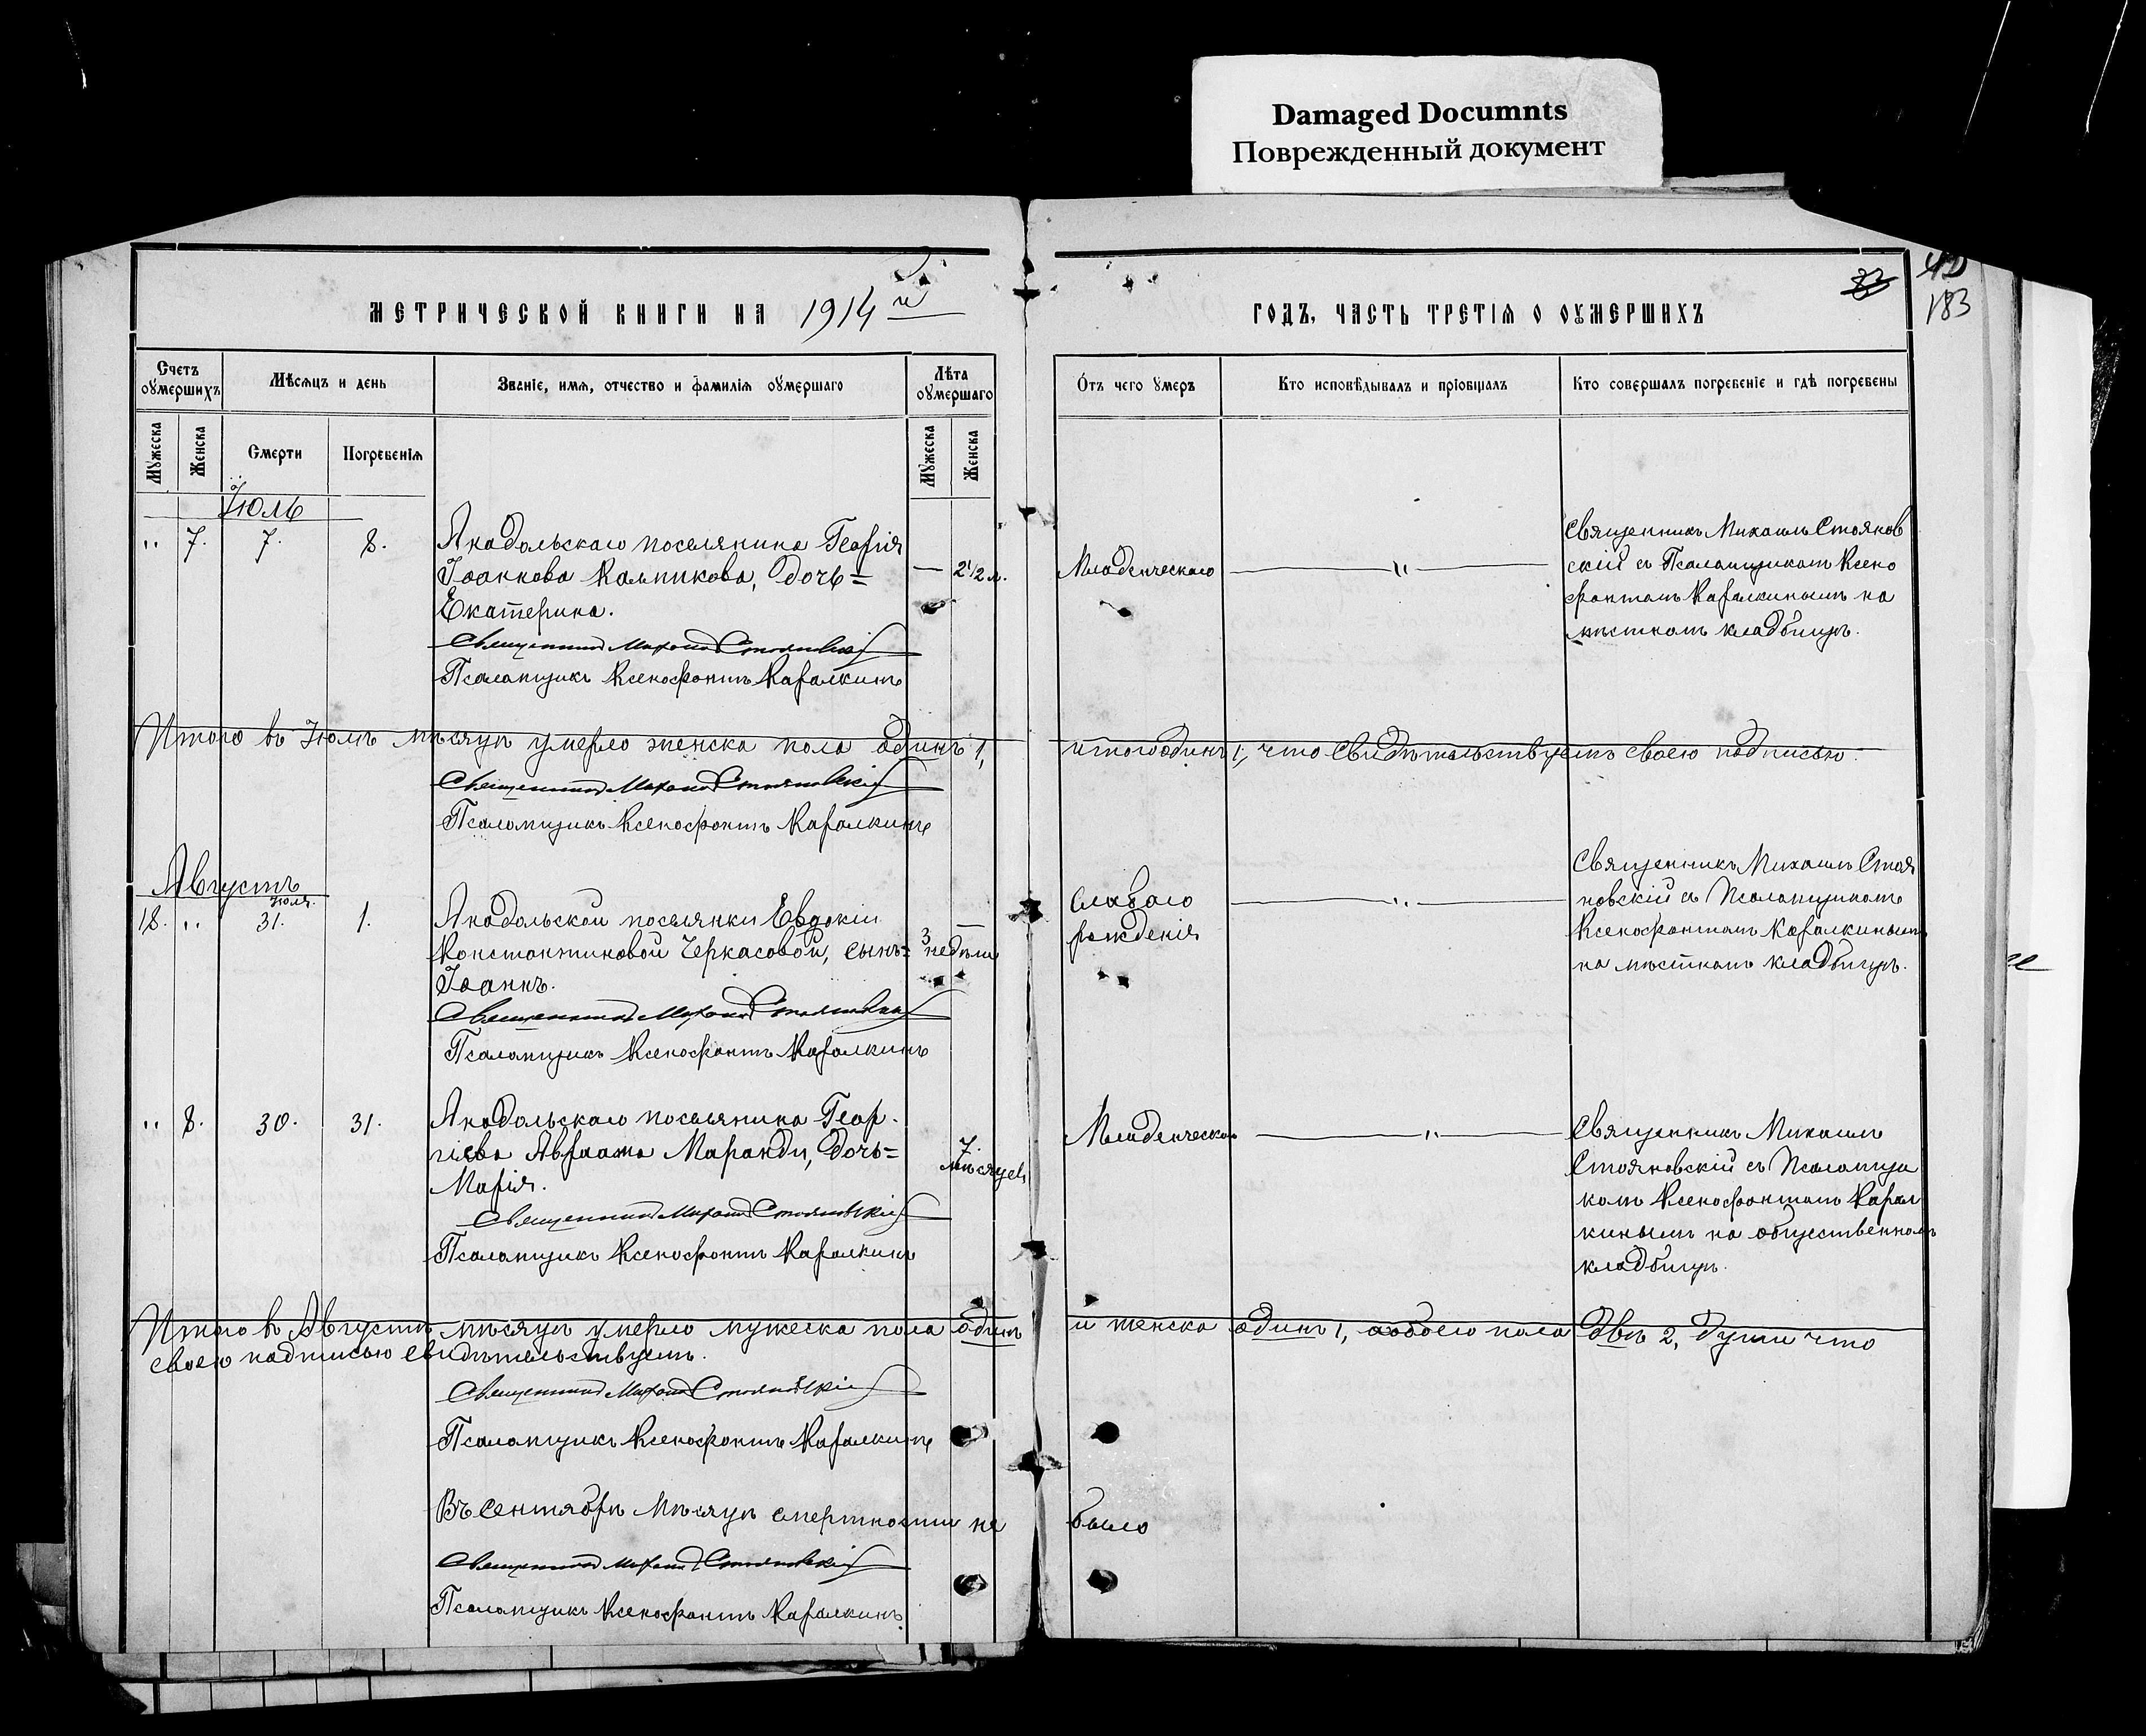 Damaged Documnts
Поврежденный документ
МЕТРИЧЕСКОЙ КНИГИ НА 1914 й
ГОДЪ, ЧАСТЬ ТРЕТІЯ О ОУМЕРШИХЪ
183
Счетъ оумершихъ
Мѣсяцъ и день
Званіе, имя, отчество и фамилія оумершаго
Лѣта оумершаго
Отъ чего умеръ
Кто исповѣдывалъ и пріобщалъ
Кто совершалъ погребеніе и гдѣ погребены
Мужеска
Женска
Смерти
Погребенія
Мужеска
Женска
Іюль
" 7. 7. 8.
Анадольскаго поселянина Георгія
Іоаннова Калпикова, дочь=
Екатерина.
— 2 1/2 л.
Младенческаго
"
Священникъ Михаилъ Стоянов
скій съ Псаломщикомъ Ксено
фонтомъ Каралкинымъ на
мѣстномъ кладбищѣ.
Священникъ Михаилъ Стояновскій
Псаломщикъ Ксенофонтъ Каралкинъ
Итого въ Іюлѣ мѣсяцѣ умерло женска пола одинъ 1,
итого одинъ 1, что свидѣтельствуемъ своею подписью.
Священникъ Михаилъ Стояновскій
Псаломщикъ Ксенофонтъ Каралкинъ
Августъ
18. " 31. Іюля. 1.
Анадольской поселянки Евдокіи
Константиновой Черкасовой, сынъ=
Іоаннъ.
3 недѣли
—
Слабаго
рожденія
"
Священникъ Михаилъ Стоя
новскій съ Псаломщикомъ
Ксенофонтомъ Каралкинымъ
на мѣстномъ кладбищѣ.
Священникъ Михаилъ Стояновскій
Псаломщикъ Ксенофонтъ Каралкинъ
" 8. 30. 31.
Анадольскаго поселянина Геор-
гіева Авраама Маранди, дочь=
Марія.
7.
мѣсяцев
Младенческаго
"
Священникъ Михаилъ
Стояновскій съ Псаломщи
комъ Ксенофонтомъ Карал
кинымъ на общественномъ
кладбищѣ.
Священникъ Михаилъ Стояновскій
Псаломщикъ Ксенофонтъ Каралкинъ
Итого въ Августѣ мѣсяцѣ умерло мужеска пола одинъ
и женска одинъ 1, обоего пола двѣ 2, души что
своею подписью свидѣтельствуемъ.
Священникъ Михаилъ Стояновскій
Псаломщикъ Ксенофонтъ Каралкинъ
Въ сентябрѣ мѣсяцѣ смертности не было
Священникъ Михаилъ Стояновскій
Псаломщикъ Ксенофонтъ Каралкинъ